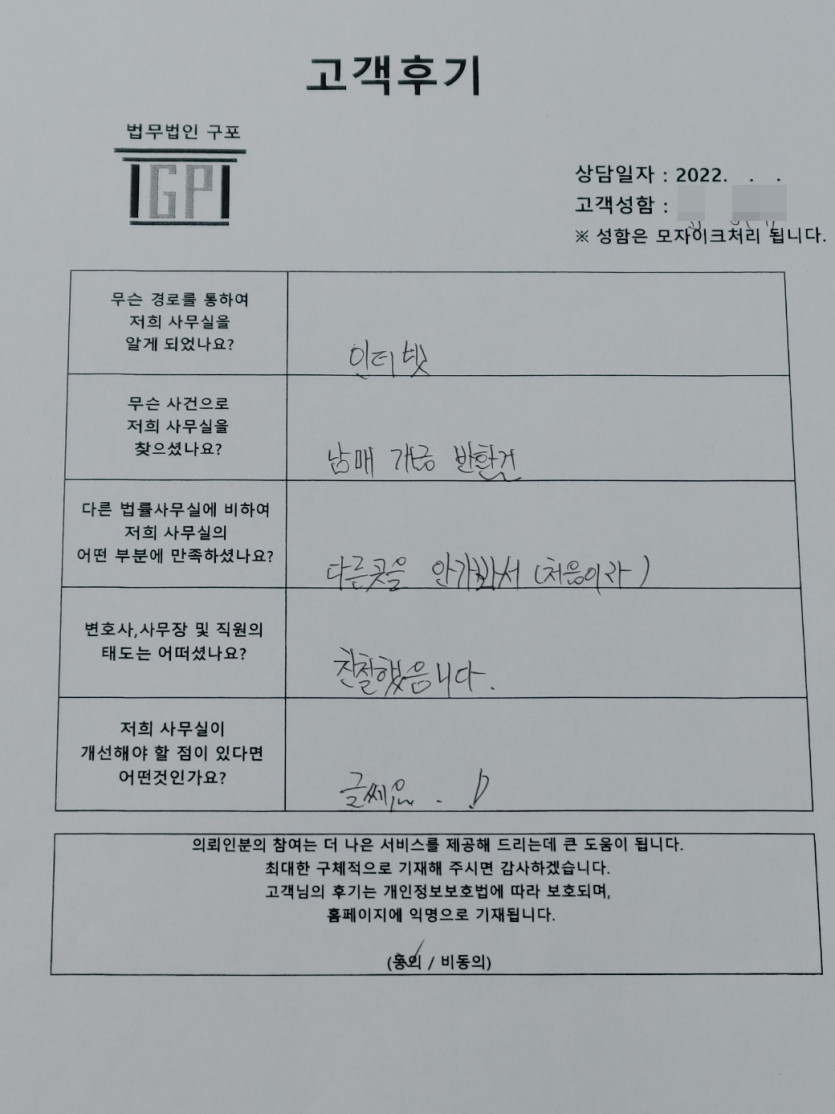 고객후기
법무법인 구포
GP
상담일자 : 2022. . .
고객성함 :
※ 성함은 모자이크처리 됩니다.
무슨 경로를 통하여
저희 사무실을
알게 되었나요?
인터넷
무슨 사건으로
저희 사무실을
찾으셨나요?
남매 개금 반환건
다른 법률사무실에 비하여
저희 사무실의
어떤 부분에 만족하셨나요?
다른곳을 안가봐서 (처음이라)
변호사,사무장 및 직원의
태도는 어떠셨나요?
친절했습니다.
저희 사무실이
개선해야 할 점이 있다면
어떤것인가요?
글쎄요. .!
의뢰인분의 참여는 더 나은 서비스를 제공해 드리는데 큰 도움이 됩니다.
최대한 구체적으로 기재해 주시면 감사하겠습니다.
고객님의 후기는 개인정보보호법에 따라 보호되며,
홈페이지에 익명으로 기재됩니다.
(동의 / 비동의)